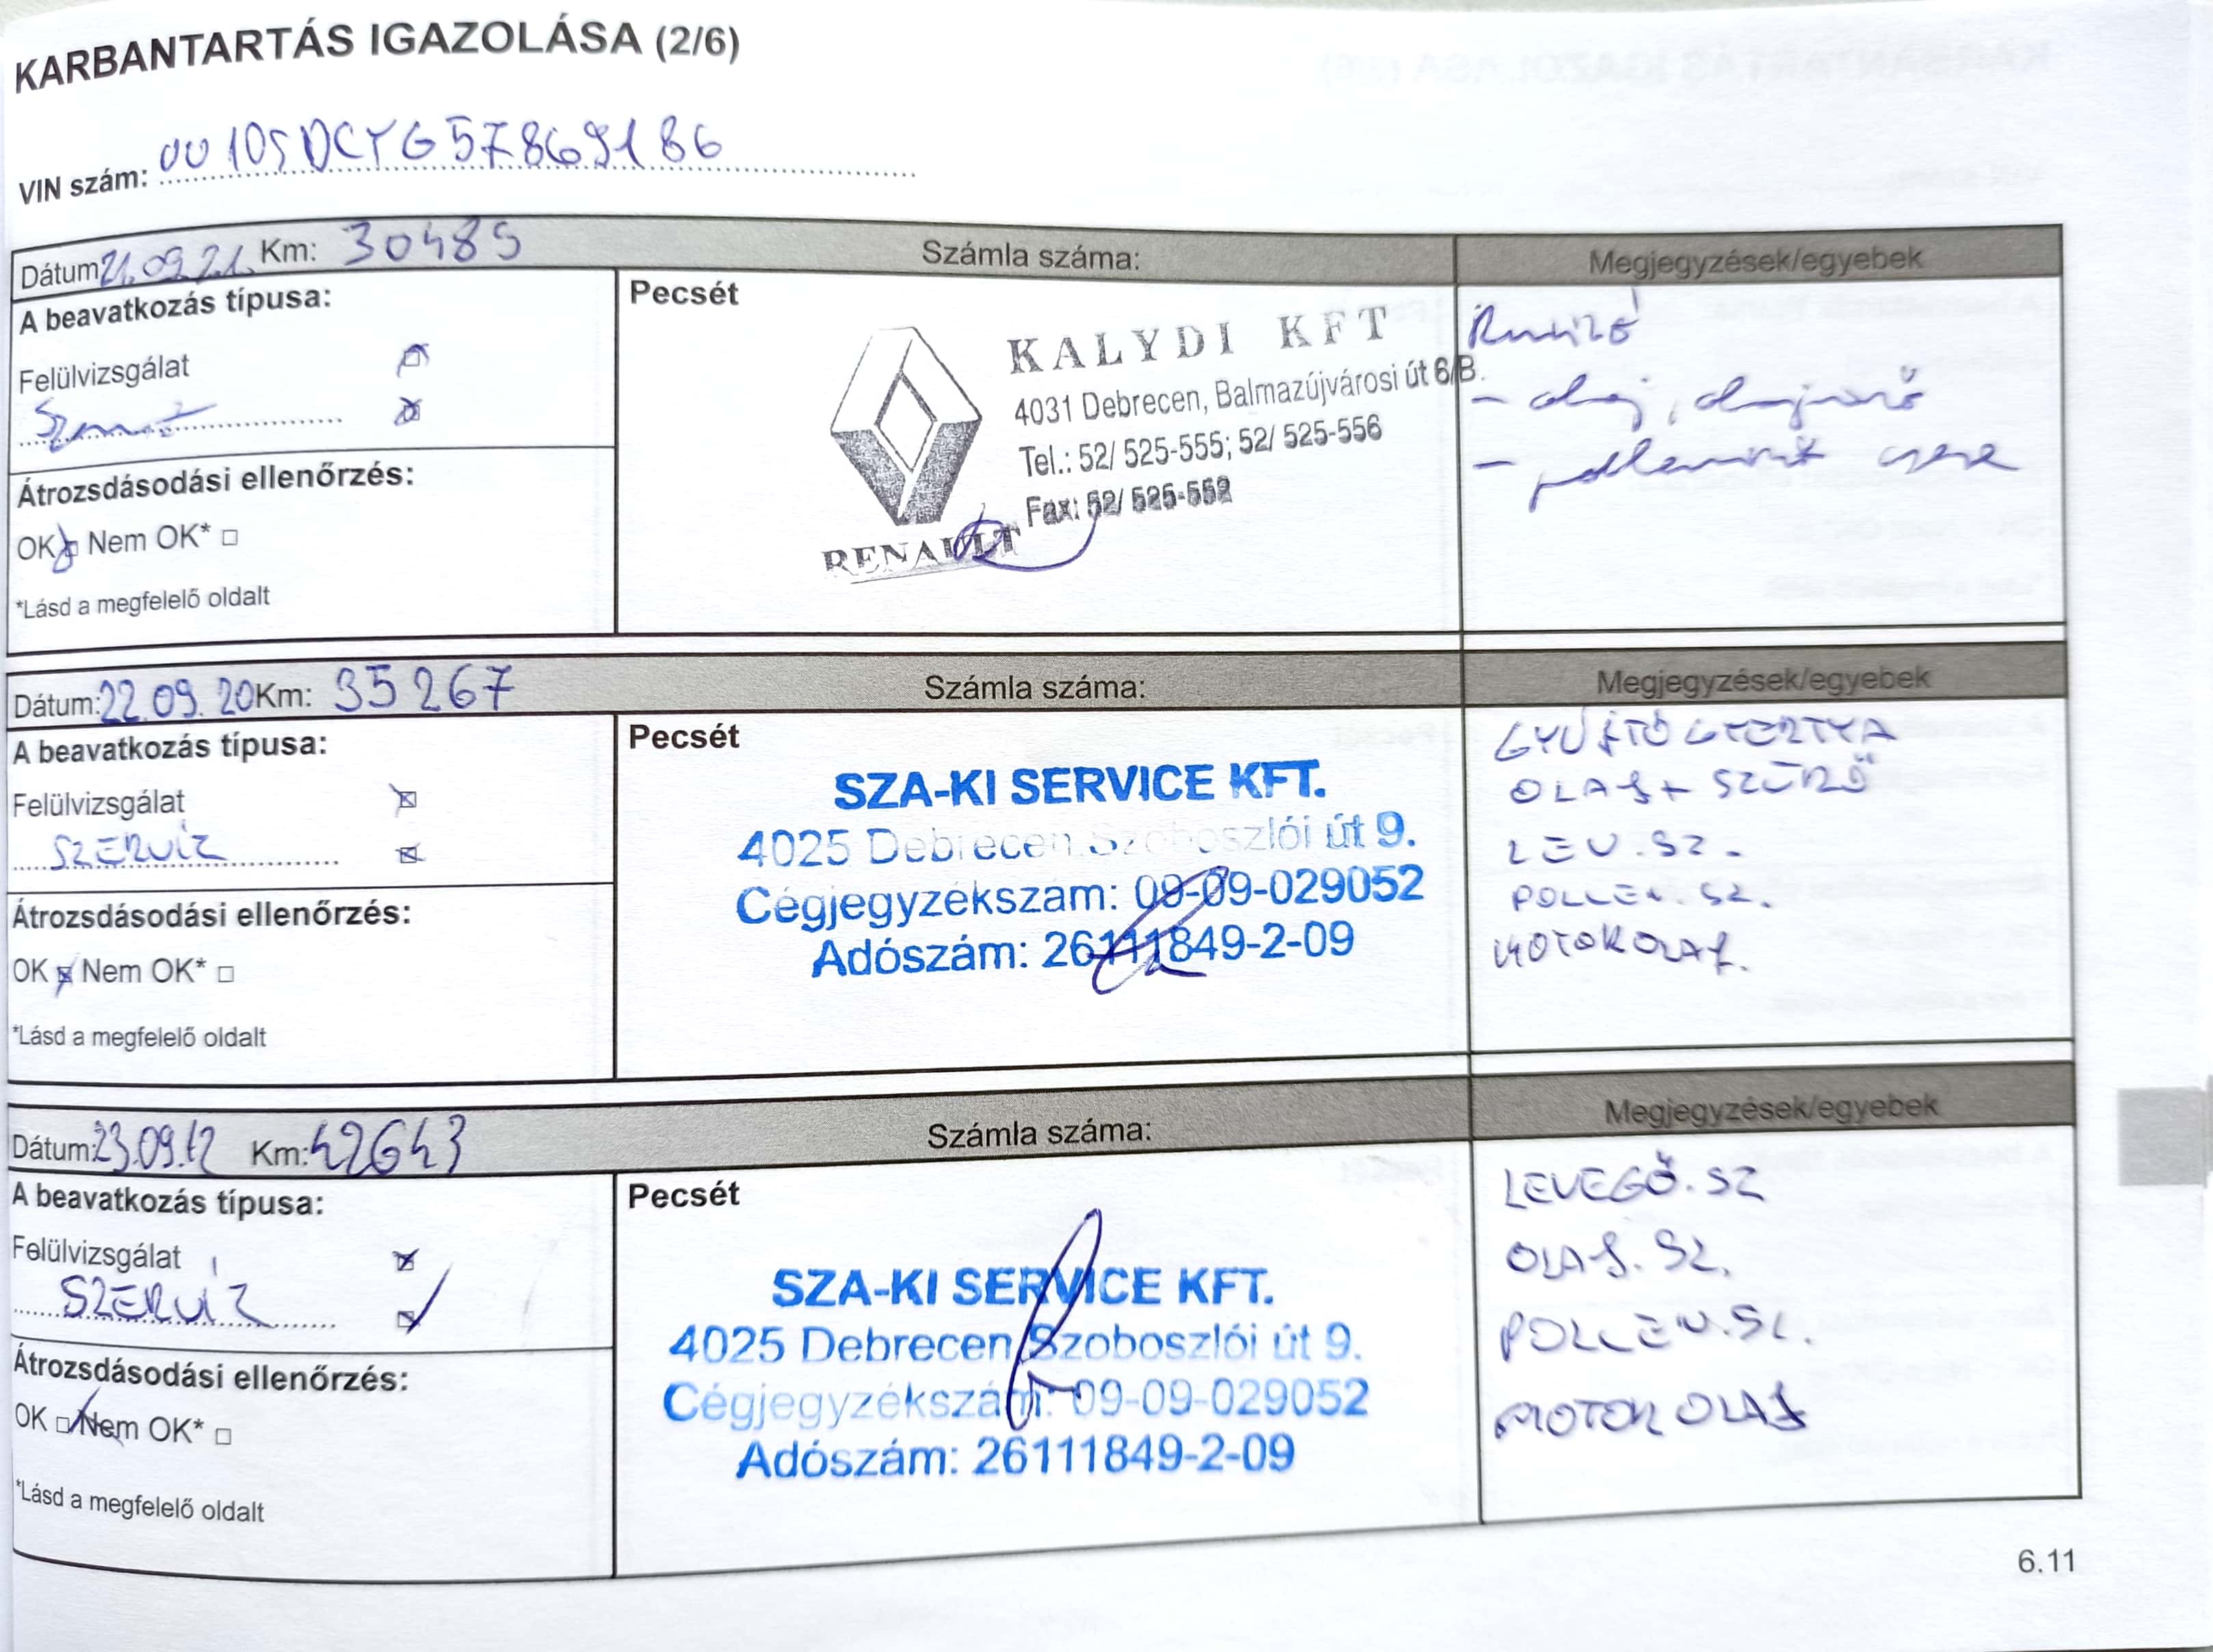 KARBANTARTÁS IGAZOLÁSA (2/6)
VIN szám: UU10SDCYG57869186
Dátum: 21.09.21. Km: 30489 Számla száma: Megjegyzések/egyebek
A beavatkozás típusa:
Felülvizsgálat
Szerviz
Átrozsdásodási ellenőrzés:
OK Nem OK*
*Lásd a megfelelő oldalt
Pecsét
KALYDI KFT
4031 Debrecen, Balmazújvárosi út 6/B.
Tel.: 52/ 525-555; 52/ 525-556
Fax: 52/ 525-552
RENAULT
- olaj, olajszűrő
- pollenszűrő csere
Dátum: 22.09.20 Km: 35267 Számla száma: Megjegyzések/egyebek
A beavatkozás típusa:
Felülvizsgálat
SZERVIZ
Átrozsdásodási ellenőrzés:
OK Nem OK*
*Lásd a megfelelő oldalt
Pecsét
SZA-KI SERVICE KFT.
4025 Debrecen Szoboszlói út 9.
Cégjegyzékszám: 09-09-029052
Adószám: 26111849-2-09
GYÚJTÓGYERTYA
OLAJ + SZŰRŐ
LEV.SZ.
POLLEN.SZ.
MOTOROLAJ.
Dátum: 23.09.12 Km: 42643 Számla száma: Megjegyzések/egyebek
A beavatkozás típusa:
Felülvizsgálat
SZERVIZ
Átrozsdásodási ellenőrzés:
OK Nem OK*
*Lásd a megfelelő oldalt
Pecsét
SZA-KI SERVICE KFT.
4025 Debrecen Szoboszlói út 9.
Cégjegyzékszám: 09-09-029052
Adószám: 26111849-2-09
LEVEGŐ.SZ
OLAJ.SZ.
POLLEN.SZ.
MOTOR OLAJ
6.11